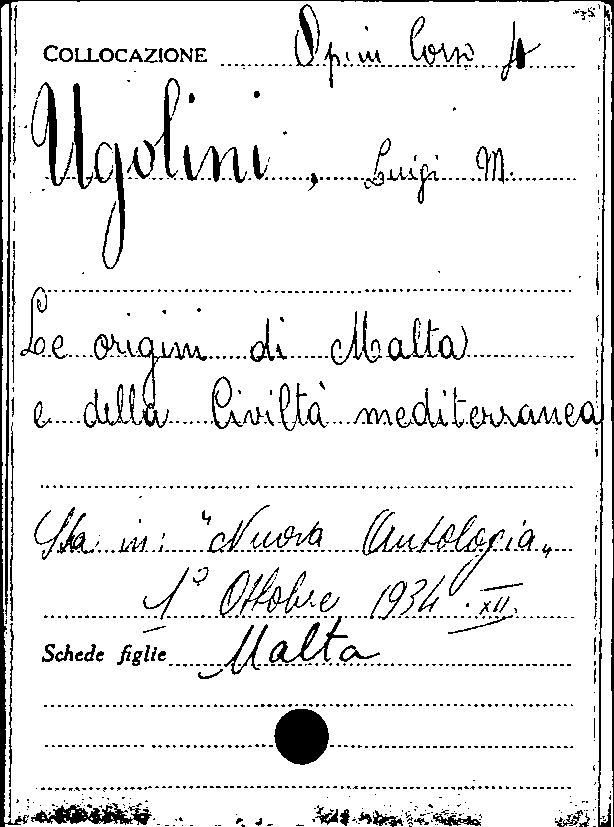 COLLOCAZIONE Opini Corso A
Ugolini, Luigi M.
Le origini di Malta
e della Civiltà mediterranea
Sta in: "Nuova Antologia„
1º Ottobre 1934 . XII.
Schede figlie Malta